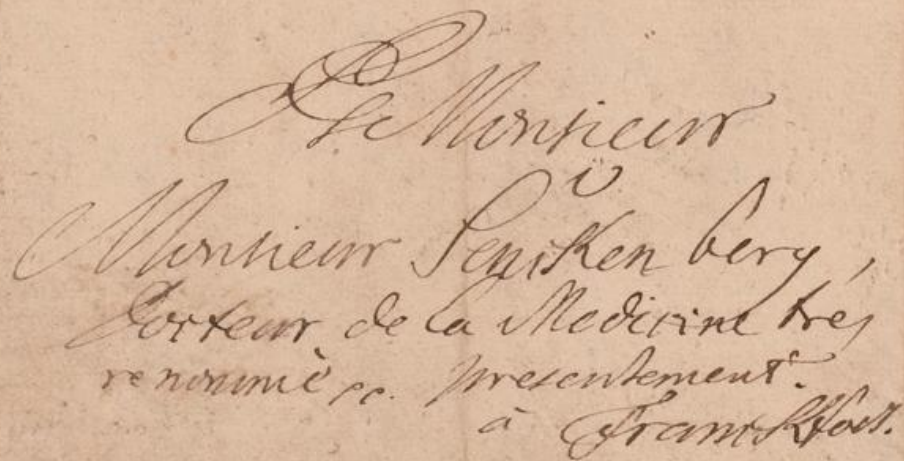 Monsieur
Monsieur SencKenberg,
Docteur de la Medicine trés
renommè pc. presentement.
à Franckfort.